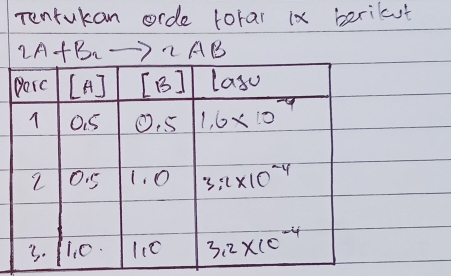 Tentukan orde total rx berikut
2A + B₂ → 2 AB
Perc [A] [B] Laju
1 0.5 0.5 1,6 × 10⁻⁴
2 0.5 1.0 3,2 × 10⁻⁴
3. 1,0. 1,0 3,2 × 10⁻⁴